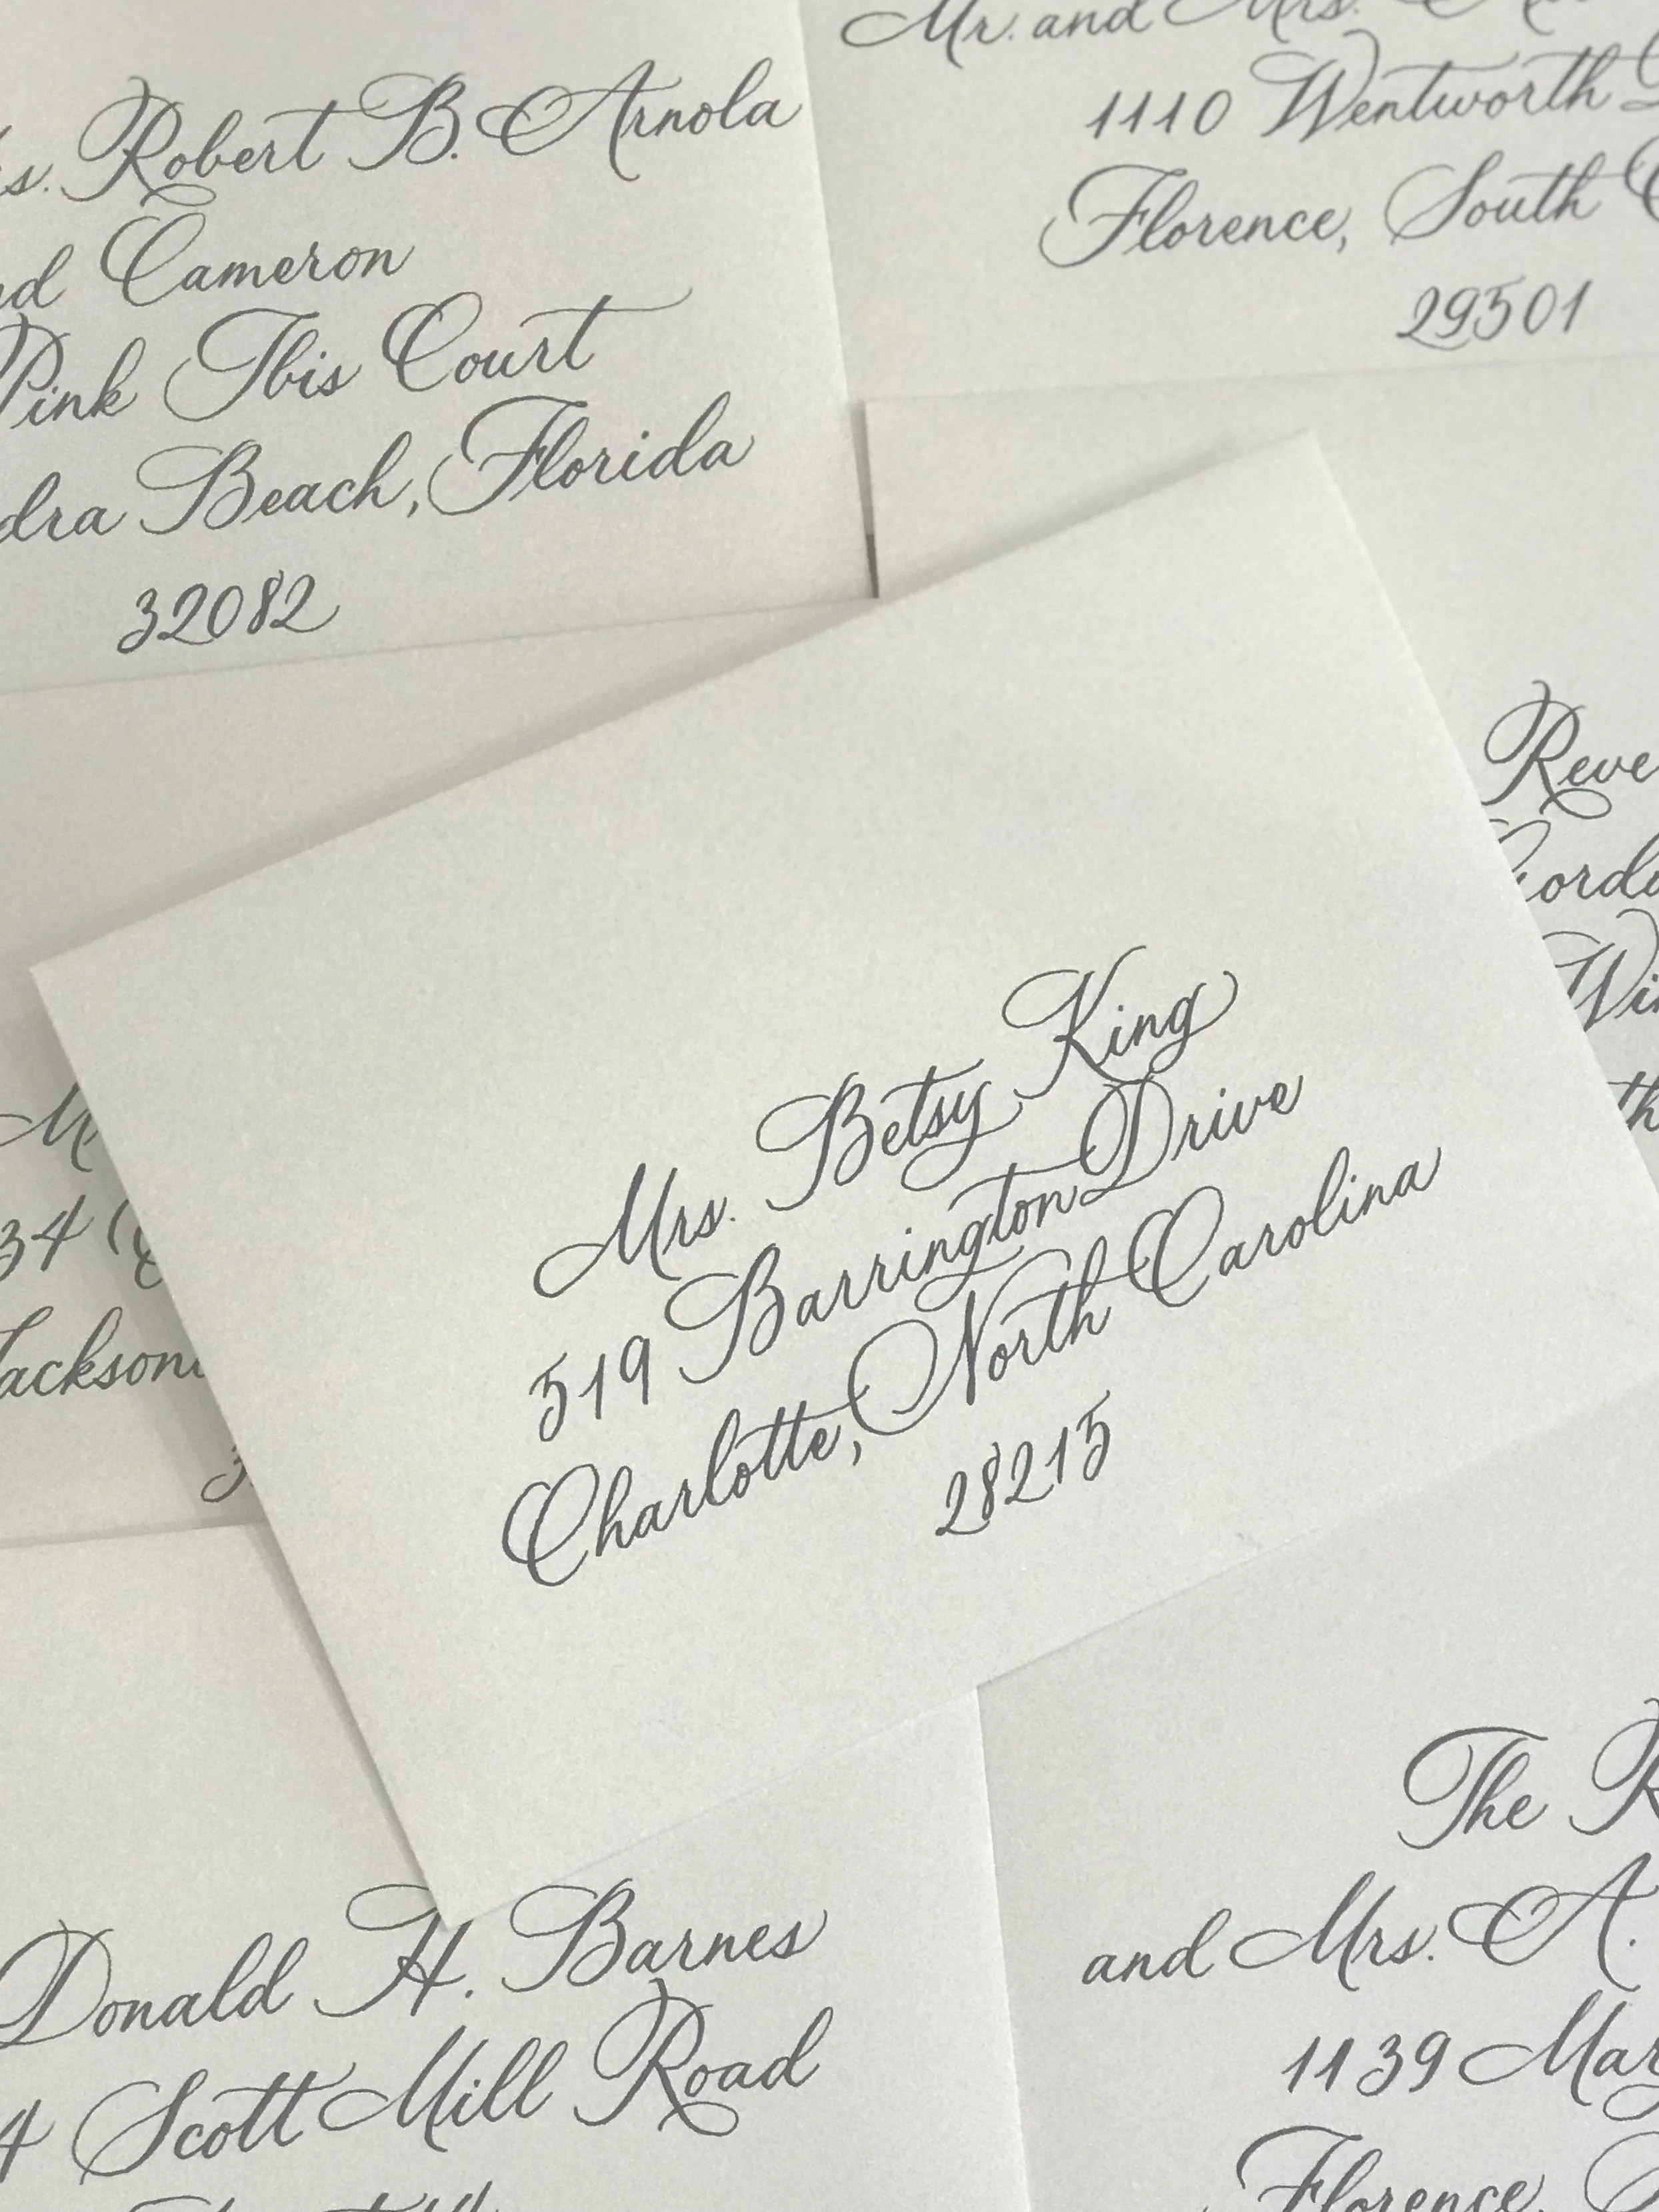 Robert B. Arnola
Cameron
Pink Ibis Court
Beach, Florida
32082
Mr. and Mrs.
1110 Wentworth
Florence, South
29501
Mrs. Betsy King
519 Barrington Drive
Charlotte, North Carolina
28215
34
Donald H. Barnes
4 Scott Mill Road
The
and Mrs. A.
1139
Florence,